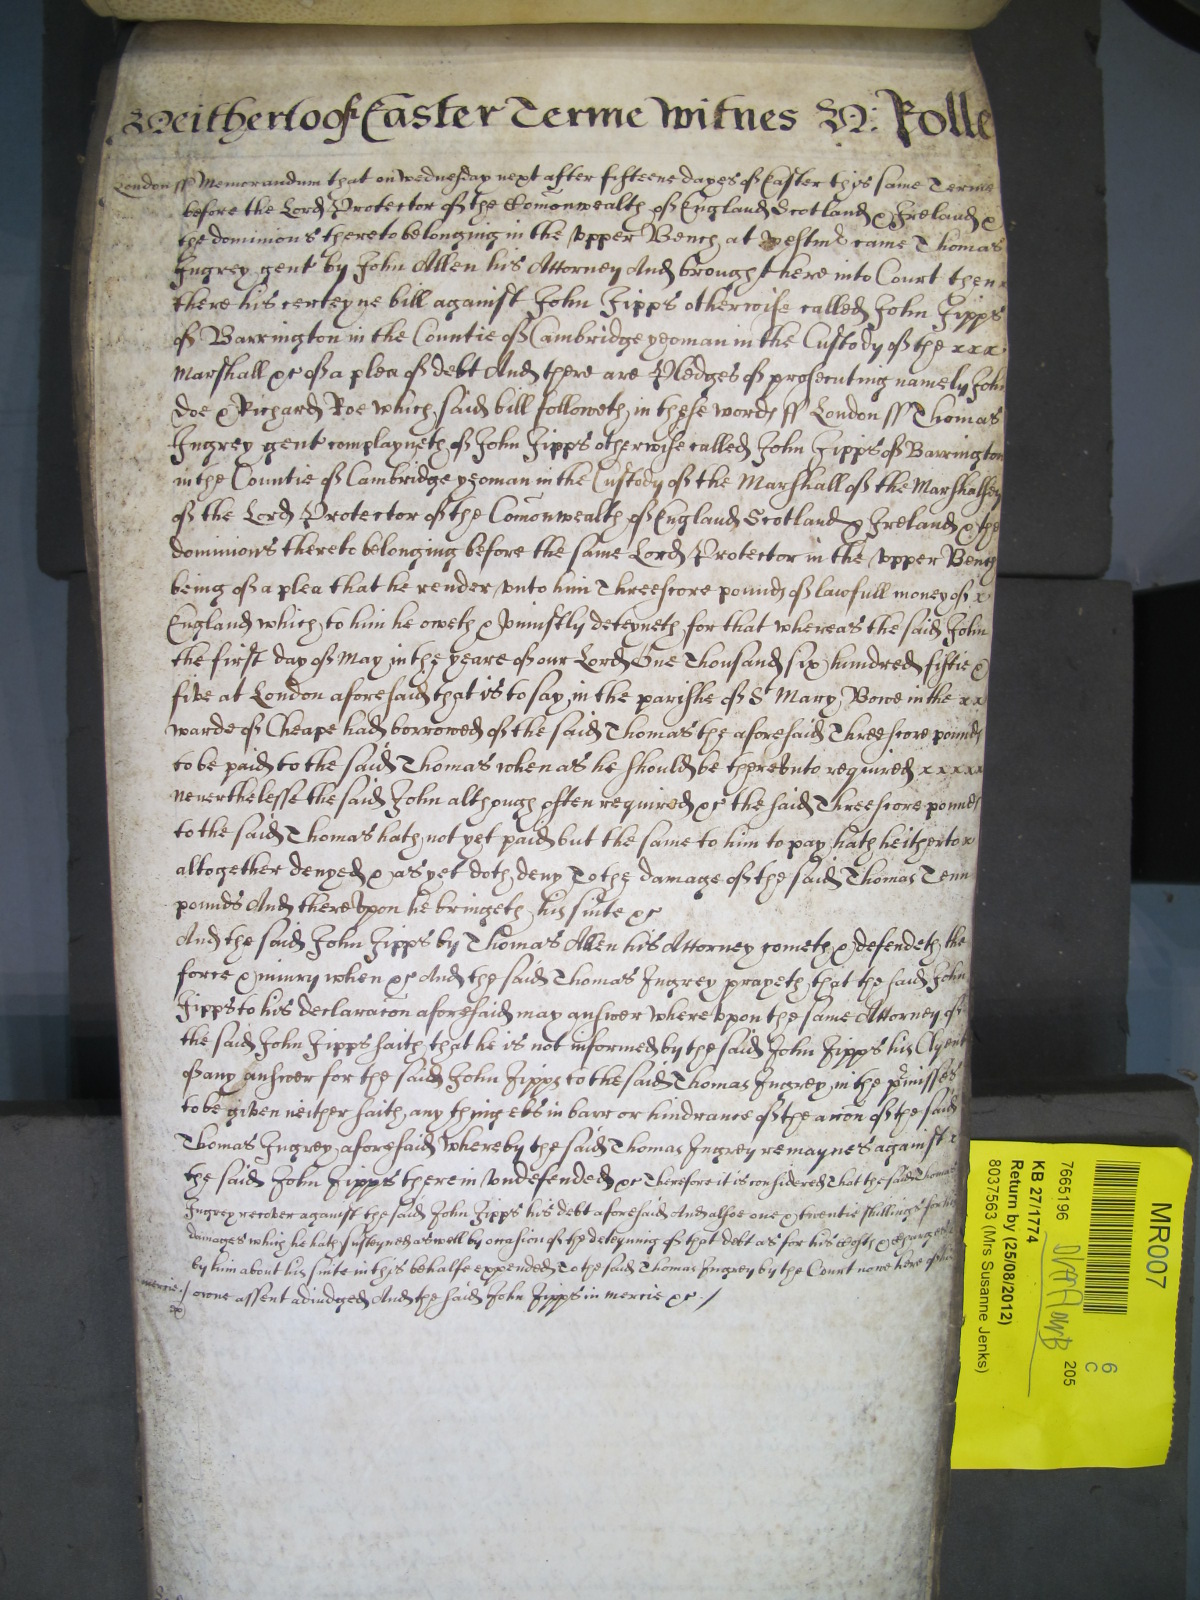 Heitherto of Easter Terme Witnes H: Rolle
London ss Memorandum that on wednesday next after fifteene dayes of Easter this same Terme
before the Lord Protector of the Com̄onwealth of England Scotland & Ireland &
the dominions thereto belonging in the upper Bench at Westmr came Thomas
Ingrey gent by John Allen his Attorney And brought here into Court then
there his certeyne bill against John Fipps otherwise called John Fipps
of Barrington in the Countie of Cambridge yeoman in the Custody of the xxx
Marshall &c of a plea of debt And there are Pledges of prosecuting namely John
Doe & Richard Roe which said bill followeth in these words ss London ss Thomas
Ingrey gent complayneth of John Fipps otherwise called John Fipps of Barrington
in the Countie of Cambridge yeoman in the Custody of the Marshall of the Marshalsey
of the Lord Protector of the Com̄onwealth of England Scotland & Ireland & the
dominions thereto belonging before the same Lord Protector in the upper Bench
being of a plea that he render unto him Threescore pounds of lawfull money of x
England which to him he oweth & uniustly deteyneth for that whereas the said John
the first day of May in the yeare of our Lord One Thousand six hundred fiftie &
five at London aforesaid that is to say in the parishe of St Mary Bowe in the xx
warde of Cheape had borrowed of the said Thomas the aforesaid Threescore pounds
to be paid to the said Thomas when as he should be thereunto required xxxxx
neverthelesse the said John although often required &c the said Threescore pounds
to the said Thomas hath not yet paid but the same to him to pay hath heitherto x
altogether denyed & as yet doth deny To the damage of the said Thomas Tenn
pounds And thereupon he bringeth his suite &c
And the said John Fipps by Thomas Allen his Attorney cometh & defendeth the
force & iniury when &c And the said Thomas Ingrey prayeth that the said John
Fipps to his declaracon aforesaid may answer whereupon the same Attorney of
the said John Fipps saith that he is not informed by the said John Fipps his Clyent
of any answer for the said John Fipps to the said Thomas Ingrey in the p̄misses
to be given neither saith any thing els in barr or hindrance of the acōn of the said
Thomas Ingrey aforesaid whereby the said Thomas Ingrey remaynes against x
the said John Fipps therein undefended &c Therefore it is considered That the said Thomas
Ingrey recover against the said John Fipps his debt aforesaid And alsoe one & twentie shillings for his
damages which he hath susteyned aswell by occasion of the deteyning of that debt as for his costs & charges
by him about his suite in this behalfe expended To the said Thomas Ingrey by the Court nowe here of his
mercie / owne assent adiudged And the said John Fipps in mercie &c /
MR007
6
C
205
7665196
KB 27/1774
Return by (25/08/2012)
8037563 (Mrs Susanne Jenks)